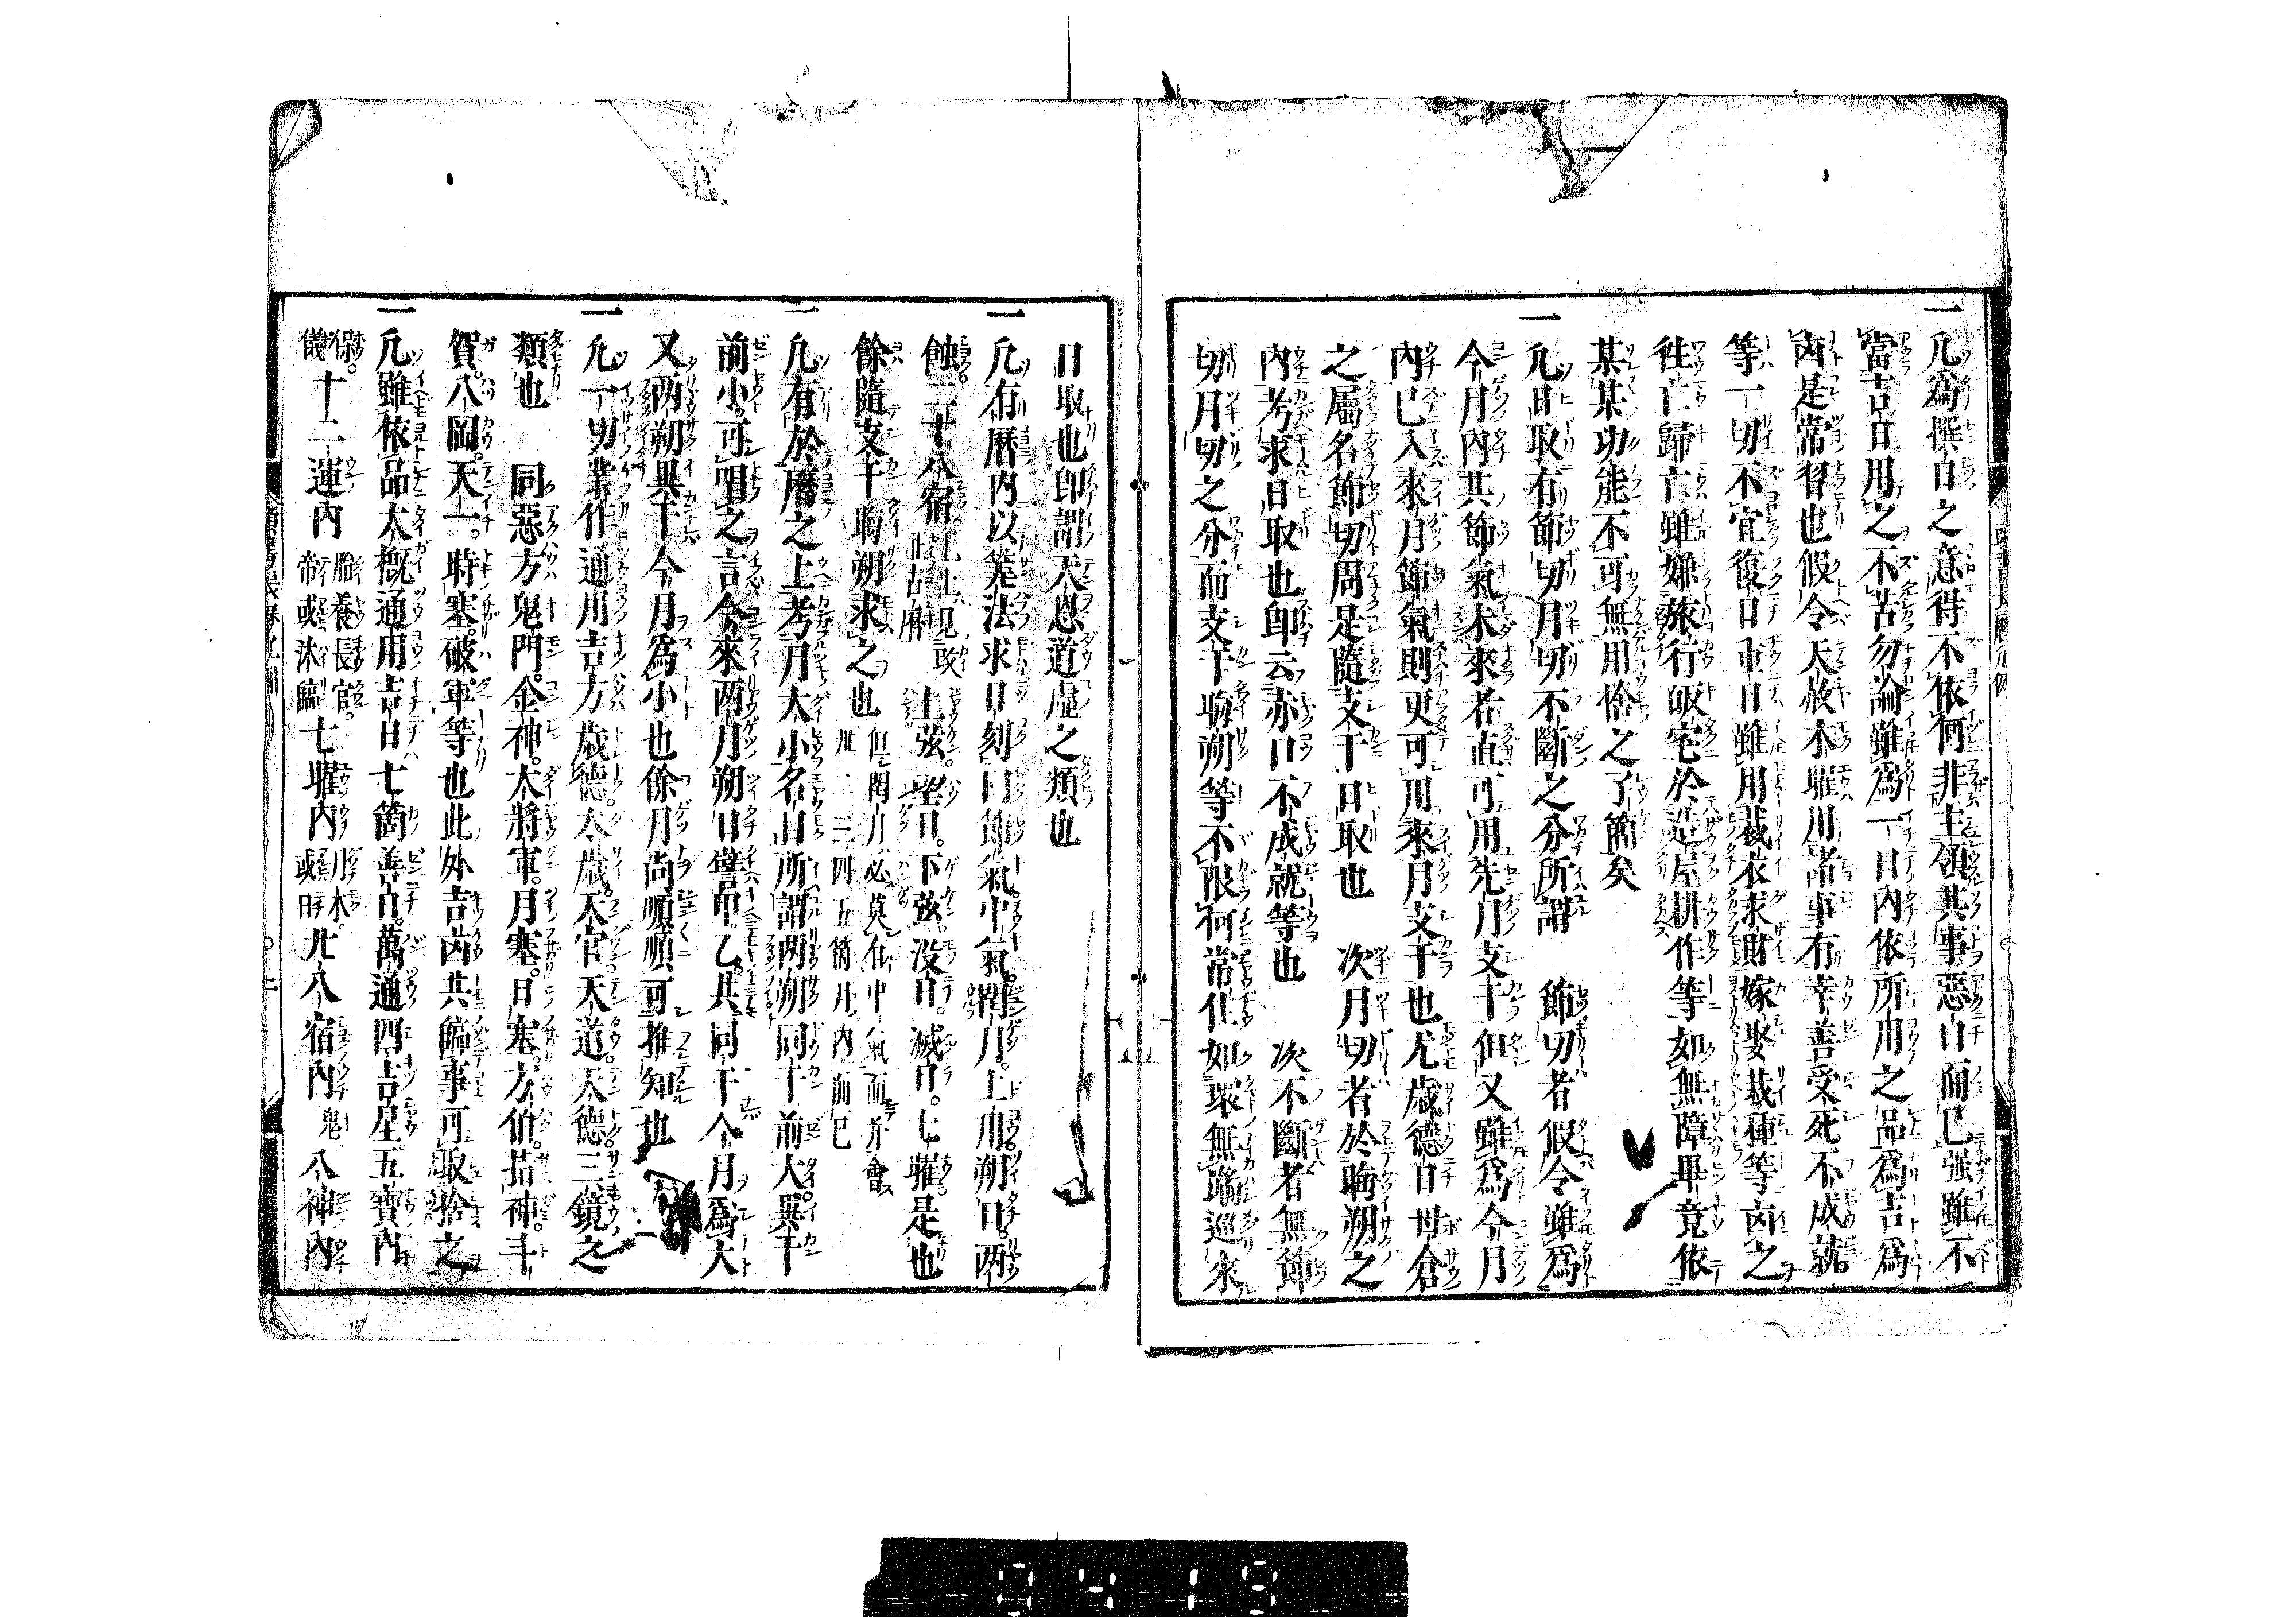 一凡爲撰日之意得不依何非主領其事惡日而已强雖不
當吉日用之不苦勿論雖爲一日內依所用之品爲吉爲
凶是常習也假令天赦木曜用諸事有幸善受死不成就
等一切不宜復日重日雖用裁衣求財嫁娶栽種等凶之
徃亡歸亡雖嫌旅行皈宅於造屋耕作等如無障畢竟依
某某功能不可無用捨之了簡矣
一凡日取有節切月切不斷之分所謂 節切者假令雖爲
今月內其節氣未來若直可用先月支干但又雖爲今月
內已入來月節氣則更可用來月支干也尤歲德日母倉
之屬名節切周是隨支干日取也 次月切者於晦朔之
內考求日取也卽云赤口不成就等也 次不斷者無節
切月切之分而支干晦朔等不限何常住如環無端巡來
日取也卽謂天恩道虛之類也
一凡有曆內以筭法求日刻曰節氣中氣。閏月。土用。朔日。兩
蝕。二十八宿。 上弦。望日。下弦。沒日。滅日。七曜。是也
餘隨支干晦朔求之也 但閏月必莫有中氣而幷會
內而已
一凡有於曆之上考月大小名目所謂兩朔同干前大異干
前小。可唱之言今來兩月朔日譬甲。乙。其同干今月爲大
又兩朔異干今月爲小也餘月尚順順可推知也
一凡一切業作通用吉方歲德大歲。天官天道天德三鏡之
類也 同惡方鬼門。金神。大將軍。月塞。日塞。方伯。指神。斗
賀。八岡。天一。時塞。破軍等也此外吉凶共臨事可取捨之
一凡雖依品大槪通用吉日七箇善日。萬通四吉星五寳內
保。
議
十二運內 胎養長官。
帝或沐臨 七曜內 月木。
或日 廿八宿內 鬼 八神內